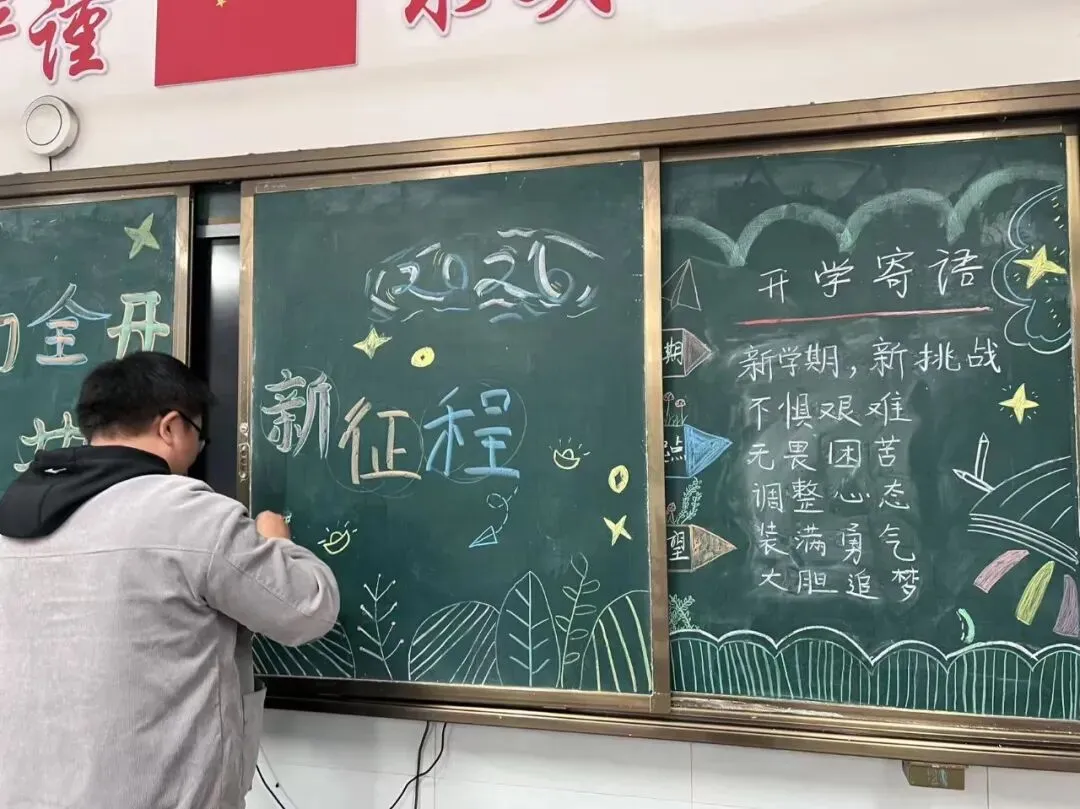 谨
2026
全开
新征程
期
点
望
开学寄语
新学期,新挑战
不惧艰难
无畏困苦
调整心态
装满勇气
大胆追梦